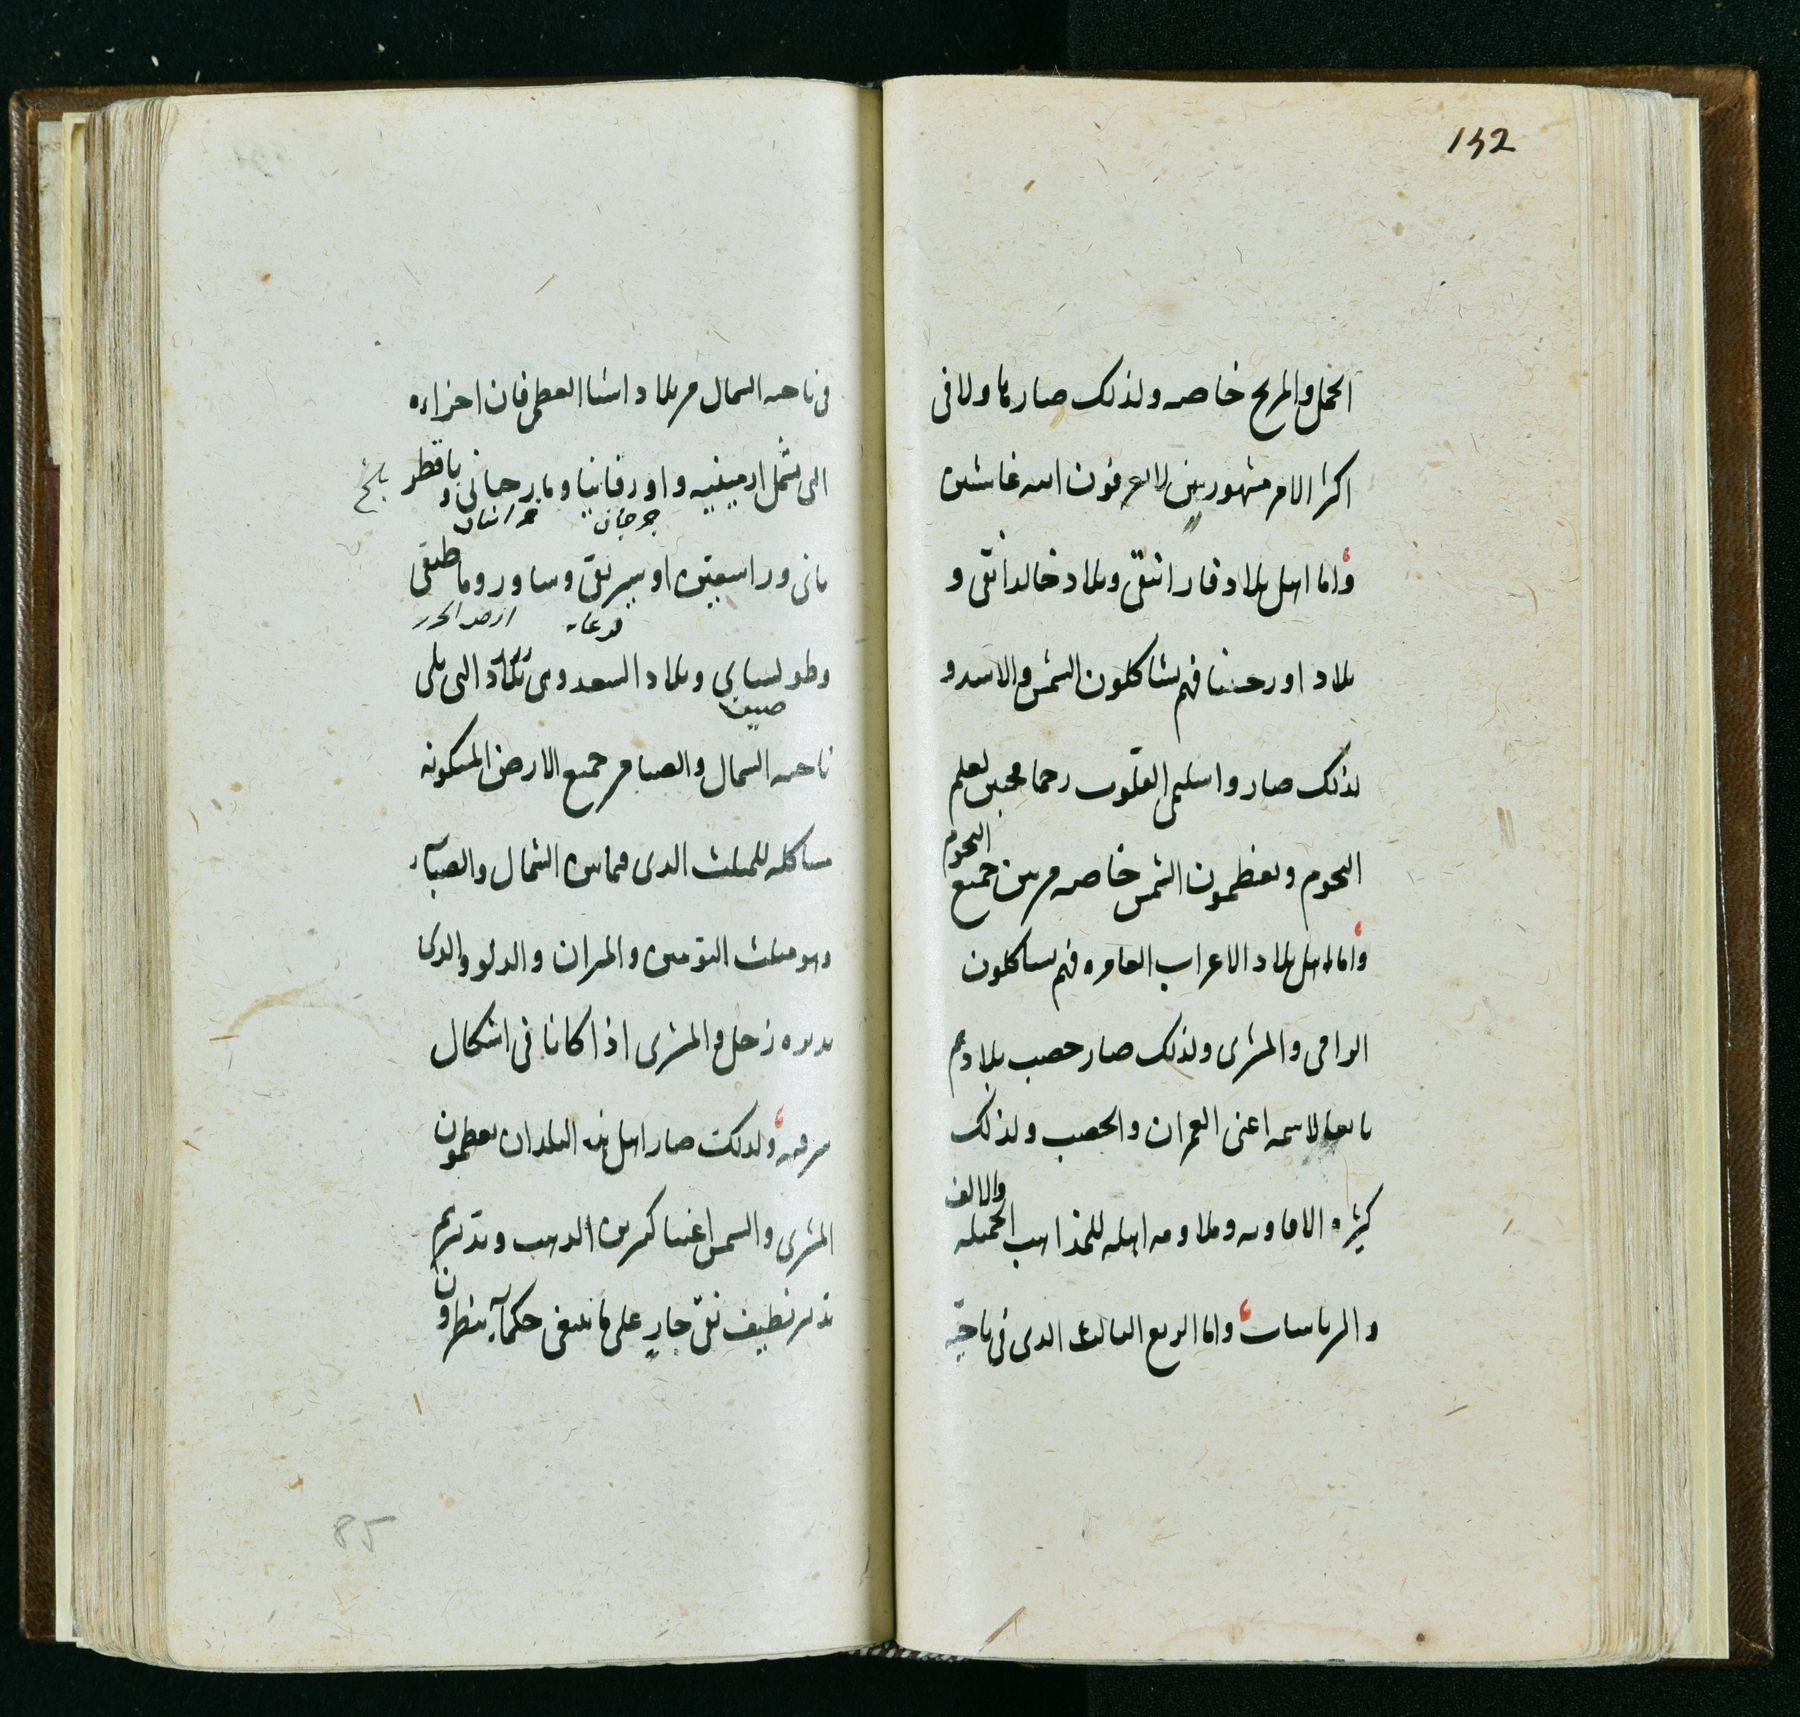 132
الحمل والمريخ خاصه ولذلك صار هاولا فى
اكثر الامر مشهورين لا يعرفون اسه غاشين
واما اهل بلاد قاراانيقى وبلاد خالدانقى و
بلاد اورحينيا فهم يشاكلون الشمس والاسد و
لذلك صاروا سليمى القلوب رحما محبين لعلم
النجوم
النجوم ويعظمون الشمس خاصه من بين جميع
واما اهل بلاد الاعراب العامره فهم يشاكلون
الرامى والمشترى ولذلك صار خصب بلادهم
تابعا لاسمه اعنى العمران والخصب ولذلك
والالف
كثيره الافاويه وملاومه اهله للمذاهب الجميله
والرياسات واما الربع الثالث الذى فى ناحيه
فى ناحيه الشمال من بلاد اسيا العظمى فان اجزاءه
التى تشمل ارمينيه واورقانيا ومارحيانى و باقطر
بلخ
جرجان خراسان
يانى و اوسيريقى وساوروماطيقى
ارض الخزر
وبلاد السغد وهى بلاد التى تلى
ناحيه الشمال والصبا من جميع الارض المسكونه
مشاكله للمثلث الذى فيما بين الشمال والصبآء
وهو مثلث التومين والميزان والدلو والذى
يدبره زحل والمشترى اذا كانا فى اشكال
شرقيه ولذلك صار اهل هذه البلدان يعظمون
المشترى والشمس اغنيا كثيرين الذهب وتدبيرهم
تدبير نظيف نقى جارٍ على ما ينبغى حكمآء ينظرون
85